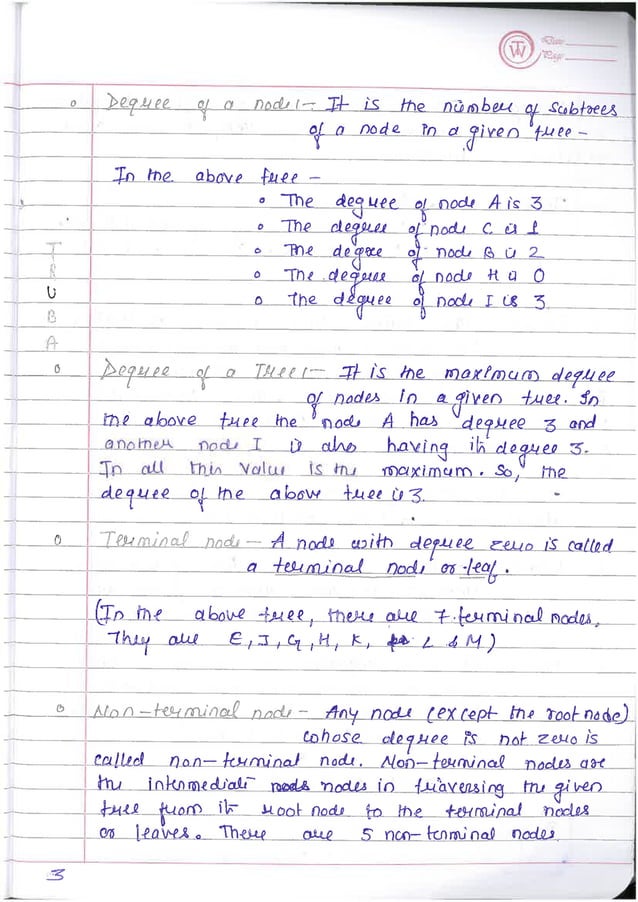 TW
Date
Page
Degree of a node:- It is the number of subtrees
of a node in a given tree-
In the above tree -
The degree of node A is 3
The degree of node C is 1
The degree of node B is 2
The degree of node H is 0
The degree of node I is 3
T
R
U
B
A
Degree of a Tree:- It is the maximum degree
of nodes in a given tree. In
the above tree the node A has degree 3 and
another node I is also having its degree 3.
In all this value is the maximum. So, the
degree of the above tree is 3.
Terminal node - A node with degree zero is called
a terminal node or leaf.
(In the above tree, there are 7 terminal nodes.
They are E, J, G, H, K, L & M)
Non-terminal node - Any node (except the root node)
whose degree is not zero is
called non-terminal node. Non-terminal nodes are
the intermediate nodes in traversing the given
tree from its root node to the terminal nodes
or leaves. There are 5 non-terminal nodes.
3